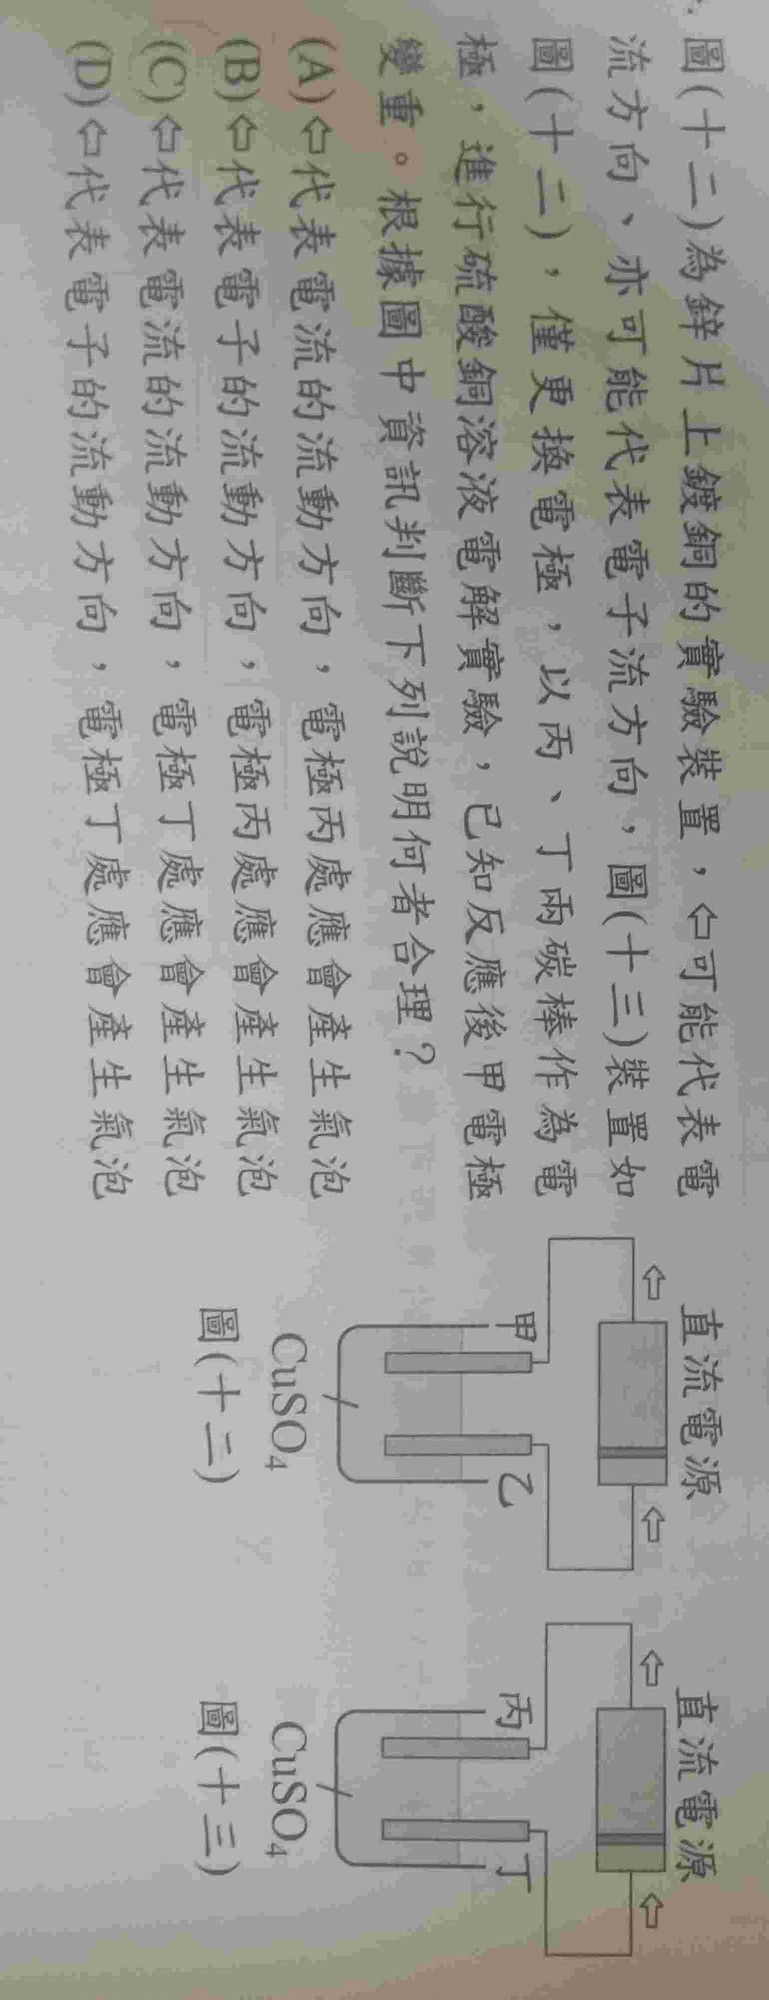 圖(十二)為鋅片上鍍銅的實驗裝置，⇦可能代表電
流方向、亦可能代表電子流方向，圖(十三)裝置如
圖(十二)，僅更換電極，以丙、丁兩碳棒作為電
極，進行硫酸銅溶液電解實驗，已知反應後甲電極
變重。根據圖中資訊判斷下列說明何者合理？
(A)⇦代表電流的流動方向，電極丙處應會產生氣泡
(B)⇦代表電子的流動方向，電極丙處應會產生氣泡
(C)⇦代表電流的流動方向，電極丁處應會產生氣泡
(D)⇦代表電子的流動方向，電極丁處應會產生氣泡
直流電源
甲
乙
CuSO₄
圖(十二)
直流電源
丙
丁
CuSO₄
圖(十三)